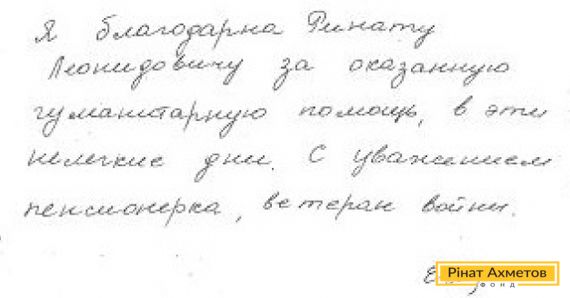 Я благодарна Ринату
Леонидовичу за оказанную
гуманитарную помощь, в эти
нелегкие дни. С уважением
пенсионерка, ветеран войны.
Рінат Ахметов
ФОНД